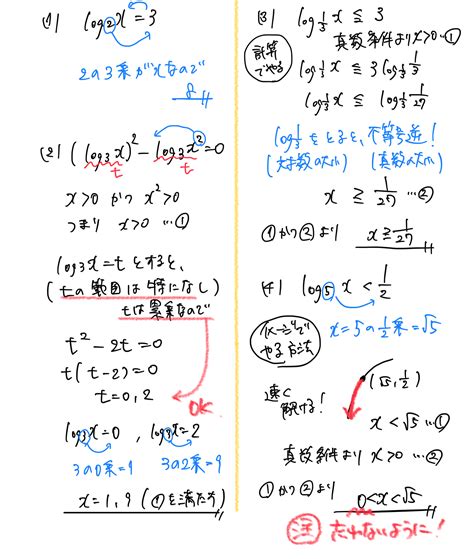 (1) log₂x = 3
2の3乗がxなので
8
(2) (log₃x)² − log₃x² = 0
t t
x>0 かつ x²>0
つまり x>0 …①
log₃x=t とすると、
(tの範囲は特になし)
tは累乗なので
t²−2t=0
t(t−2)=0
t=0, 2
OK
log₃x=0, log₃x=2
3の0乗=1 3の2乗=9
x=1, 9 (①を満たす)
(3) log_{1/3} x ≦ 3
真数条件より x>0 …①
計算でやる
log_{1/3} x ≦ 3 log_{1/3} 1/3
log_{1/3} x ≦ log_{1/3} 1/27
log_{1/3} をとると、不等号逆!
(対数の大小) (真数の大小)
x ≧ 1/27 …②
①かつ②より x≧1/27
(4) log₅x < 1/2
x=5の1/2乗=√5
イメージでやる方法
速く解ける!
(√5, 1/2)
x<√5 …①
真数条件より x>0 …②
①かつ②より
0<x<√5
注 忘れないように!